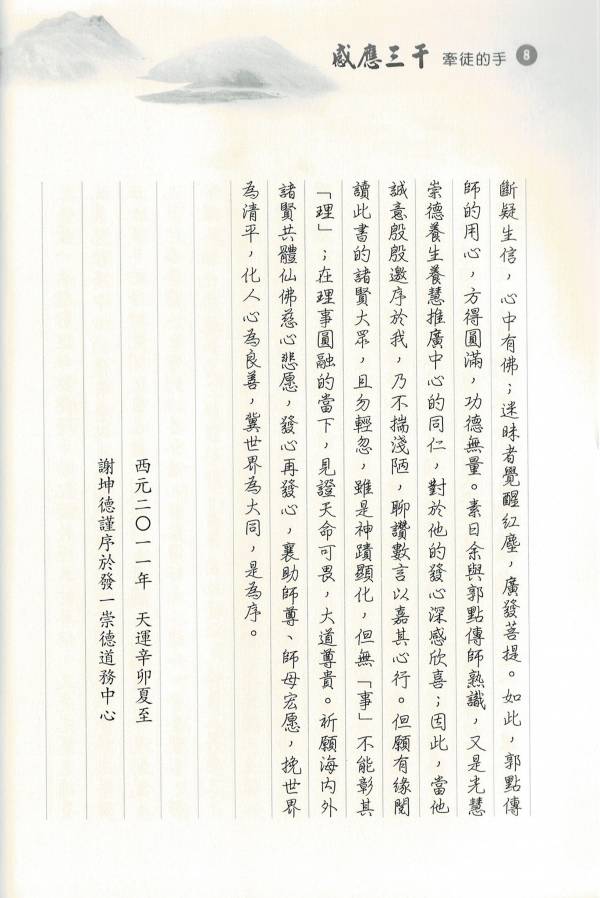 感應三千 牽徒的手 8
斷疑生信，心中有佛；迷昧者覺醒紅塵，廣發菩提。如此，郭點傳
師的用心，方得圓滿，功德無量。素日余與郭點傳師熟識，又是光慧
崇德養生養慧推廣中心的同仁，對於他的發心深感欣喜；因此，當他
誠意殷殷邀序於我，乃不揣淺陋，聊讚數言以嘉其心行。但願有緣閱
讀此書的諸賢大眾，且勿輕忽，雖是神蹟顯化，但無「事」不能彰其
「理」；在理事圓融的當下，見證天命可畏，大道尊貴。祈願海內外
諸賢共體仙佛慈心悲愿，發心再發心，襄助師尊、師母宏愿，挽世界
為清平，化人心為良善，冀世界為大同，是為序。
西元二〇一一年　天運辛卯夏至
謝坤德謹序於發一崇德道務中心